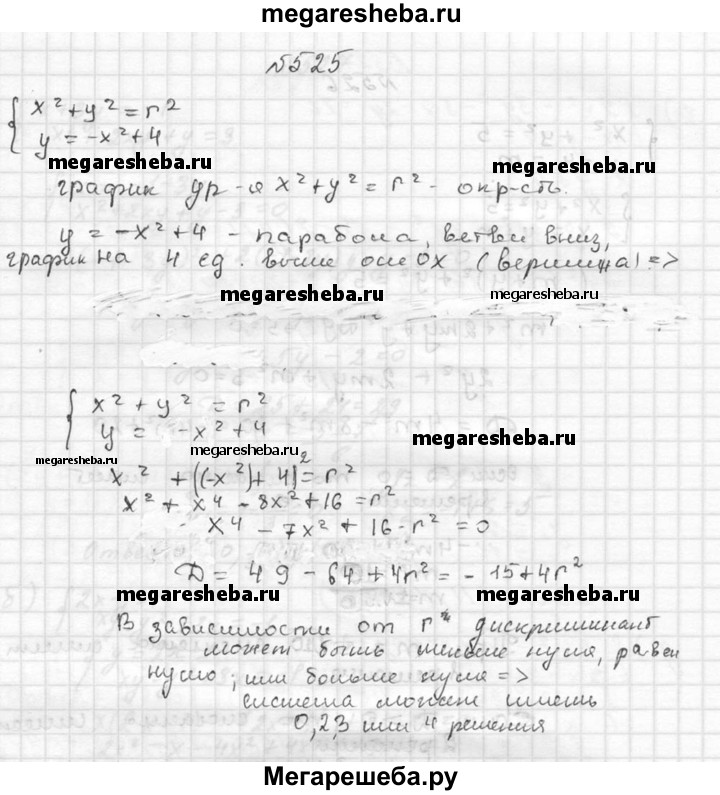 megaresheba.ru
№525
x² + y² = r²
y = -x² + 4
megaresheba.ru megaresheba.ru
график ур-я x² + y² = r² - окр-сть.
y = -x² + 4 - парабола, ветви вниз,
график на 4 ед. выше оси OX (вершина) =>
megaresheba.ru megaresheba.ru
x² + y² = r²
y = -x² + 4
megaresheba.ru megaresheba.ru megaresheba.ru
x² + ((-x²) + 4)² = r²
x² + x⁴ - 8x² + 16 = r²
x⁴ - 7x² + 16 - r² = 0
D = 49 - 64 + 4r² = -15 + 4r²
megaresheba.ru megaresheba.ru
В зависимости от r² дискриминант
может быть меньше нуля, равен
нулю, или больше нуля =>
система может иметь
0, 2, 3 или 4 решения
Мегарешеба.ру